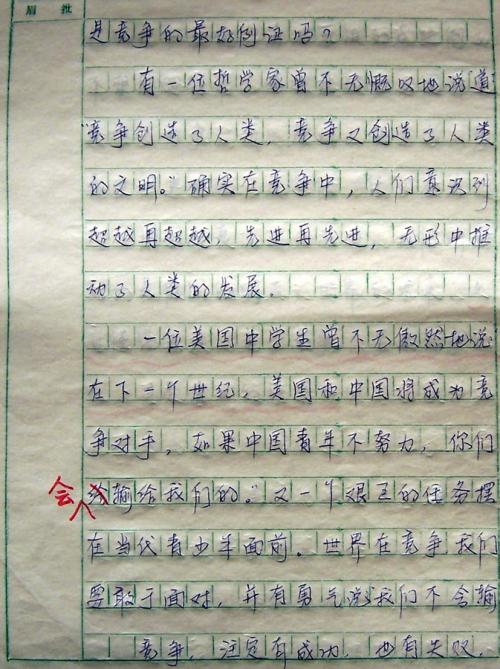 眉批
是竞争的最好例证吗？
有一位哲学家曾不无慨叹地说道
“竞争创造了人类，竞争又创造了人类
的文明。”确实在竞争中，人们意识到
超越再超越，先进再先进，无形中推
动了人类的发展。
一位美国中学生曾不无傲然地说
在下一个世纪，美国和中国将成为竞
争对手，如果中国青年不努力，你们
会输给我们的。”又一个艰巨的任务摆
在当代青少年面前。世界在竞争，我们
要敢于面对，并有勇气说我们不会输
竞争，注定有成功，也有失败，